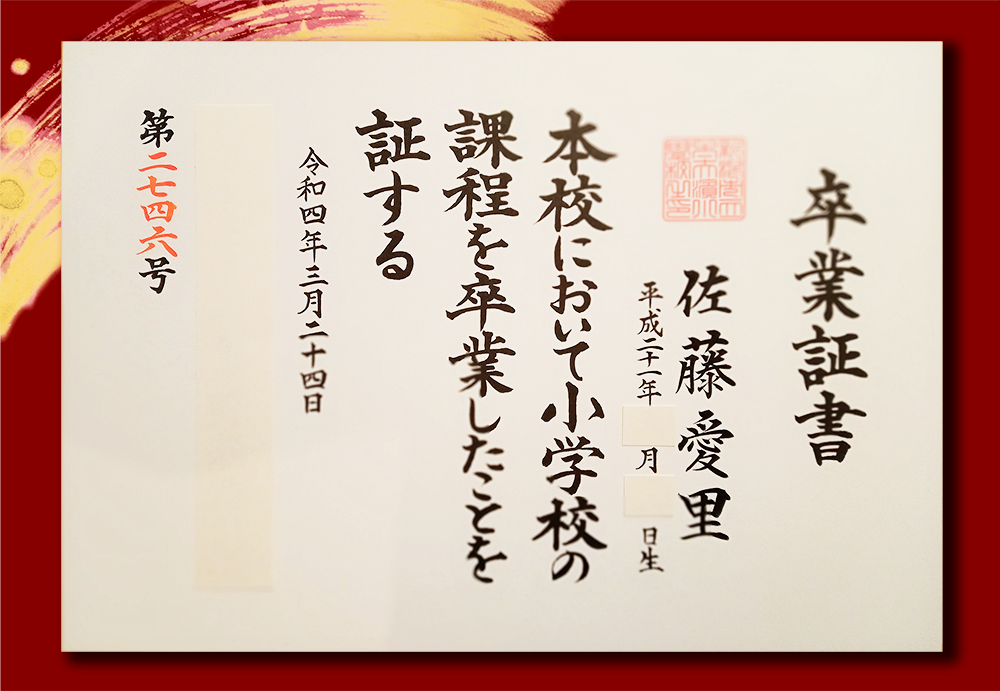 卒業証書
佐藤愛里
平成二十一年 月 日生
本校において小学校の
課程を卒業したことを
証する
令和四年三月二十四日
第二七四六号